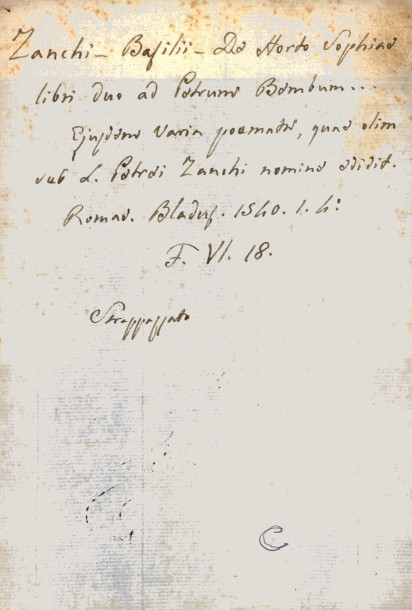 Zanchi - Basilii - De Horto Sophiae
libri duo ad Petrum Bembum...
Ejusdem varia poemata, quae olim
sub L. Petrei Zanchi nomine edidit.
Romae. Bladus. 1540. 1. 4°
F. VI. 18.
Strappazzato
C